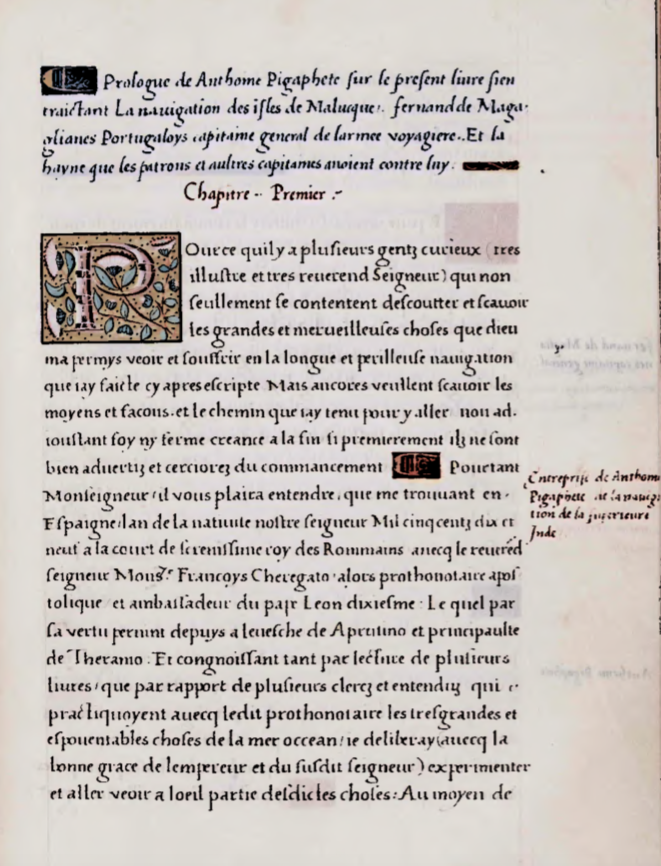 Prologue de Anthoine Pigaphete sur le present liure sien
traictant La nauigation des isles de Malucque. fernand de Maga-
glianes Portugaloys capitaine general de larmee voyagiere. Et la
hayne que les patrons et aultres capitaines auoient contre luy.
Chapitre Premier
Pource quil y a plusieurs gentz curieux (tres
illustre et tres reuerend Seigneur) qui non
seullement se contentent descoutter et scauoir
les grandes et merueilleuses choses que dieu
ma permys veoir et souffrir en la longue et perilleuse nauigation
que iay faicte cy apres escripte Mais ancores veullent scauoir les
moyens et facons. et le chemin que iay tenu pour y aller non ad.
ioustant foy ny ferme creance a la fin si premierement ilz ne sont
bien aduertiz et cerciorez du commancement Pourtant
Monseigneur il vous plaira entendre, que me trouuant en
Espaigne lan de la natiuite nostre seigneur Mil cinq centz dix et
neuf a la court de serenissime roy des Rommains auecq le reuered
seigneur Mons.r Francoys Cheregato alors prothonotaire apos
tolique et ambassadeur du pape Leon dixiesme : Le quel par
sa vertu peruint depuys a leuesche de Aprutino et principaulte
de Theramo . Et congnoissant tant par lecture de plusieurs
liures, que par rapport de plusieurs clercz et entenduz qui
practiquoyent auecq ledit prothonotaire les tresgrandes et
espouentables choses de la mer occeane ie deliberay (auecq la
bonne grace de lempereur et du susdit seigneur) experimenter
et aller veoir a loeil partie desdictes choses : Au moyen de
Entreprise de Anthoine
Pigaphete de la nauiga
tion de la superieure
Inde